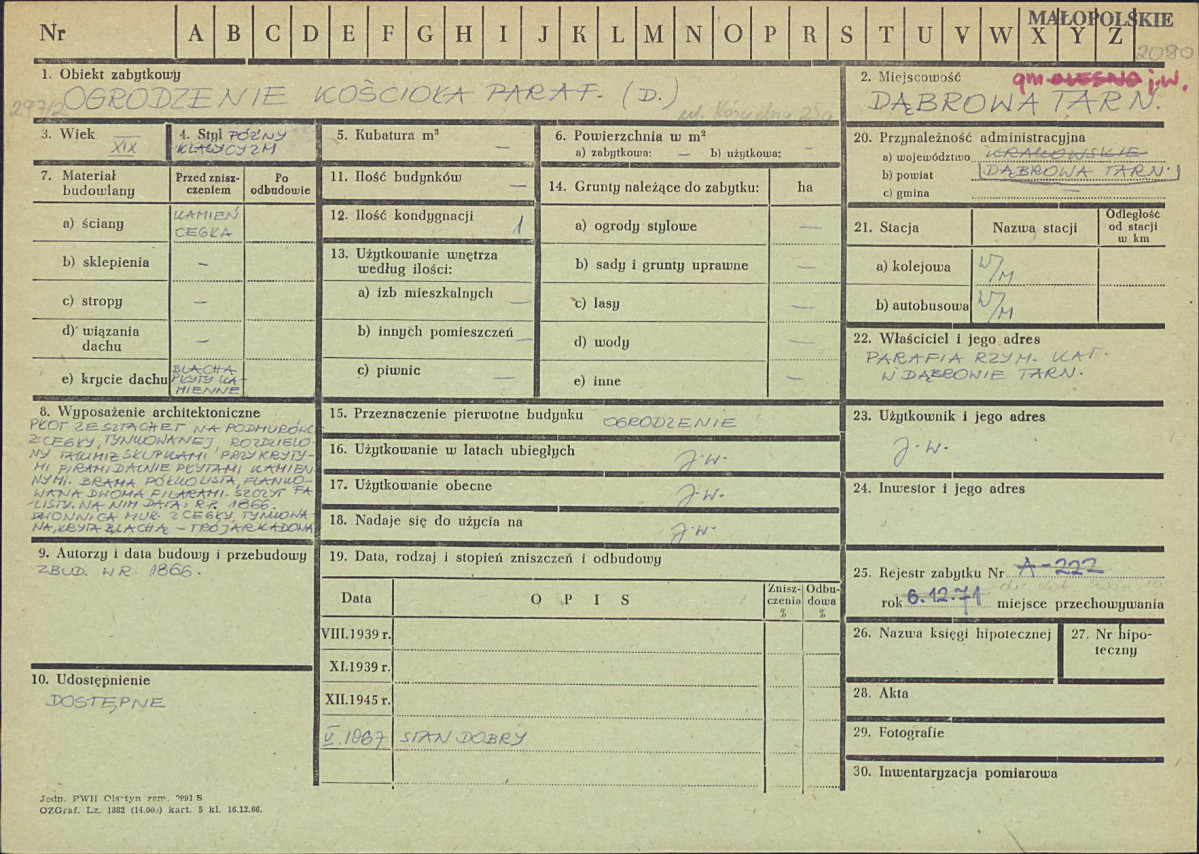 MAŁOPOLSKIE
Nr A B C D E F G H I J K L M N O P R S T U V W X Y Z
2080
1. Obiekt zabytkowy
297/2
OGRODZENIE KOŚCIOŁA PARAF. (D.)
ul. Kościelna
2. Miejscowość
gm. OLESNO j.w.
DĄBROWA TARN.
3. Wiek
XIX
4. Styl PÓŹNY
KLASYCYZM
5. Kubatura m³
—
6. Powierzchnia w m²
a) zabytkowa: — b) użytkowa: —
7. Materiał budowlany
Przed zniszczeniem
Po odbudowie
a) ściany
KAMIEŃ
CEGŁA
b) sklepienia —
c) stropy —
d) wiązania dachu —
e) krycie dachu
BLACHA
PŁYTY KA-
MIENNE
11. Ilość budynków —
12. Ilość kondygnacji 1
13. Użytkowanie wnętrza
według ilości:
a) izb mieszkalnych —
b) innych pomieszczeń —
c) piwnic —
14. Grunty należące do zabytku: ha
a) ogrody stylowe —
b) sady i grunty uprawne —
c) lasy —
d) wody —
e) inne —
20. Przynależność administracyjna
a) województwo KRAKOWSKIE
b) powiat DĄBROWA TARN.
c) gmina —
21. Stacja
Nazwa stacji
Odległość
od stacji
w km
a) kolejowa W/M
b) autobusowa W/M
22. Właściciel i jego adres
PARAFIA RZYM. KAT.
W DĄBROWIE TARN.
8. Wyposażenie architektoniczne
PŁOT ZE SZTACHET NA PODMURÓWC
Z CEGŁY, TYNKOWANEJ, ROZDZIELO-
NY TAKIMIŻ SŁUPKAMI PRZYKRYTY-
MI PIRAMIDALNIE PŁYTAMI KAMIEN
NYMI. BRAMA PÓŁKOLISTA, FLANKO-
WANA DWOMA FILARAMI. SZCZYT FA
LISTY. NA NIM DATA: R.P. 1866.
DZWONNICA MUR. Z CEGŁY, TYNKOWA-
NA, KRYTA BLACHĄ – TRÓJARKADOWA
15. Przeznaczenie pierwotne budynku OGRODZENIE
16. Użytkowanie w latach ubiegłych j.w.
17. Użytkowanie obecne j.w.
18. Nadaje się do użycia na j.w.
23. Użytkownik i jego adres
j.w.
24. Inwestor i jego adres
9. Autorzy i data budowy i przebudowy
ZBUD. W R. 1866.
19. Data, rodzaj i stopień zniszczeń i odbudowy
Data
OPIS
Znisz-
czenia
%
Odbu-
dowa
%
VIII.1939 r.
XI.1939 r.
XII.1945 r.
V. 1967 STAN DOBRY
25. Rejestr zabytku Nr A-222
rok 6.12.71 miejsce przechowywania
26. Nazwa księgi hipotecznej
27. Nr hipo-
teczny
10. Udostępnienie
DOSTĘPNE
28. Akta
29. Fotografie
30. Inwentaryzacja pomiarowa
Jedn. PWH Olsztyn zam. 2991 S
OZGraf. Lz. 1882 (14.000) kart. 5 kl. 16.12.66.